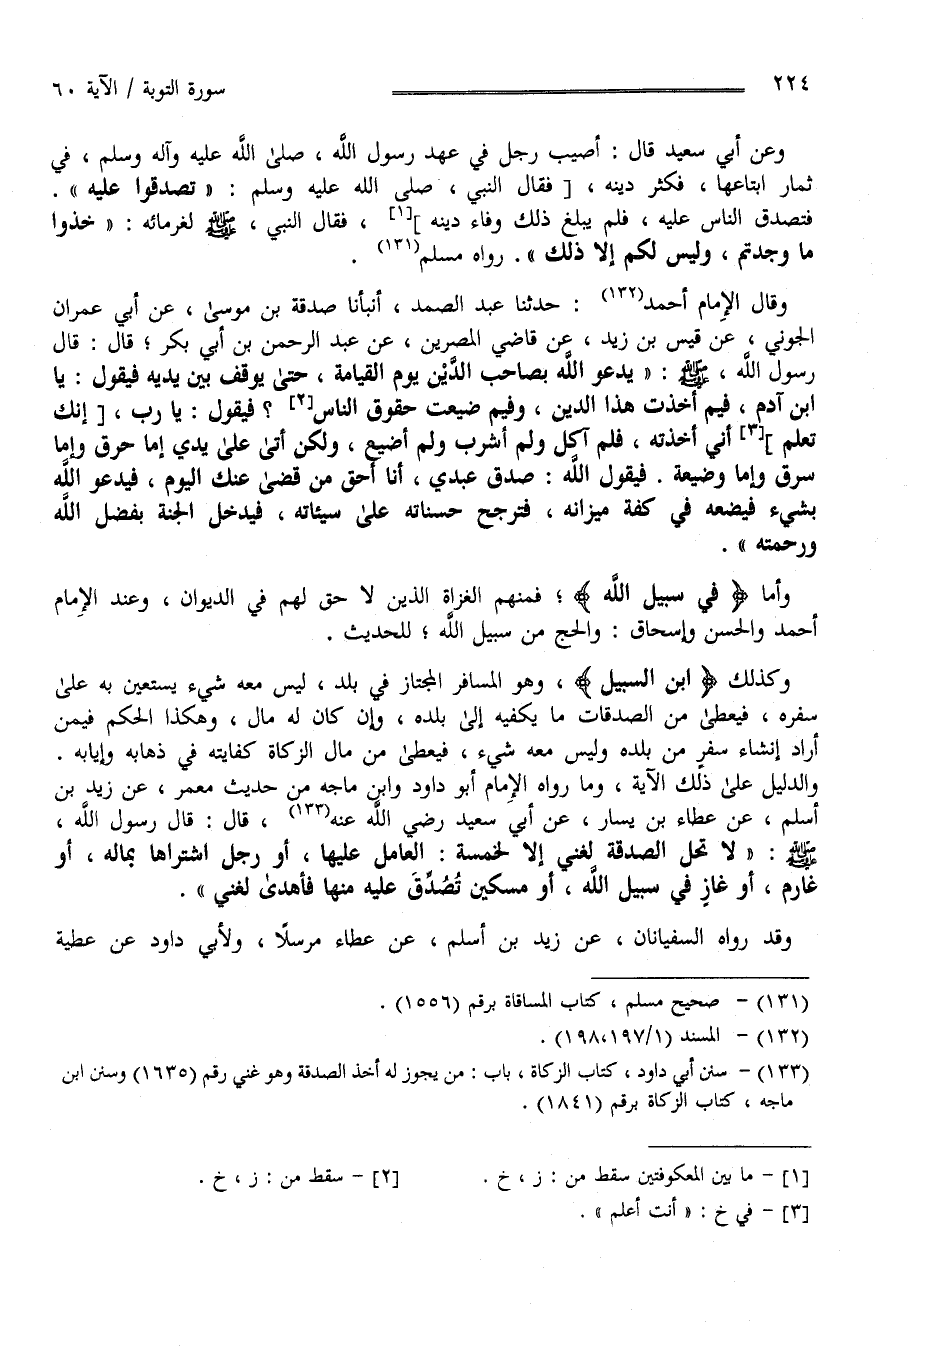 ٢٢٤ سورة التوبة / الآية ٦٠
وعن أبي سعيد قال : أصيب رجل في عهد رسول اللَّه ، صلىٰ اللَّه عليه وآله وسلم ، في
ثمار ابتاعها ، فكثر دينه ، [ فقال النبي ، صلى الله عليه وسلم : « تصدقوا عليه » .
فتصدق الناس عليه ، فلم يبلغ ذلك وفاء دينه ][١] ، فقال النبي ، ﷺ لغرمائه : « خذوا
ما وجدتم ، وليس لكم إلا ذلك » . رواه مسلم(١٣١) .
وقال الإمام أحمد(١٣٢) : حدثنا عبد الصمد ، أنبأنا صدقة بن موسىٰ ، عن أبي عمران
الجوني ، عن قيس بن زيد ، عن قاضي المصرين ، عن عبد الرحمن بن أبي بكر ؛ قال : قال
رسول اللَّه ، ﷺ : « يدعو اللَّه بصاحب الدَّيْن يوم القيامة ، حتىٰ يوقف بين يديه فيقول : يا
ابن آدم ، فيم أخذت هذا الدين ، وفيم ضيعت حقوق الناس[٢] ؟ فيقول : يا رب ، [ إنك
تعلم ][٣] أني أخذته ، فلم آكل ولم أشرب ولم أضيع ، ولكن أتىٰ علىٰ يدي إما حرق وإما
سرق وإما وضيعة . فيقول اللَّه : صدق عبدي ، أنا أحق من قضىٰ عنك اليوم ، فيدعو اللَّه
بشيء فيضعه في كفة ميزانه ، فترجح حسناته علىٰ سيئاته ، فيدخل الجنة بفضل اللَّه
ورحمته » .
وأما ﴿ في سبيل اللَّه ﴾ ؛ فمنهم الغزاة الذين لا حق لهم في الديوان ، وعند الإمام
أحمد والحسن وإسحاق : والحج من سبيل اللَّه ؛ للحديث .
وكذلك ﴿ ابن السبيل ﴾ ، وهو المسافر المجتاز في بلد ، ليس معه شيء يستعين به علىٰ
سفره ، فيعطىٰ من الصدقات ما يكفيه إلىٰ بلده ، وإن كان له مال ، وهكذا الحكم فيمن
أراد إنشاء سفرٍ من بلده وليس معه شيء ، فيعطىٰ من مال الزكاة كفايته في ذهابه وإيابه .
والدليل علىٰ ذلك الآية ، وما رواه الإمام أبو داود وابن ماجه من حديث معمر ، عن زيد بن
أسلم ، عن عطاء بن يسار ، عن أبي سعيد رضي اللَّه عنه(١٣٣) ، قال : قال رسول اللَّه ،
ﷺ : « لا تحل الصدقة لغني إلا لخمسة : العامل عليها ، أو رجل اشتراها بماله ، أو
غارم ، أو غازٍ في سبيل اللَّه ، أو مسكين تُصُدِّقَ عليه منها فأهدىٰ لغني » .
وقد رواه السفيانان ، عن زيد بن أسلم ، عن عطاء مرسلًا ، ولأبي داود عن عطية
(١٣١) - صحيح مسلم ، كتاب المساقاة برقم (١٥٥٦) .
(١٣٢) - المسند (١٩٨،١٩٧/١) .
(١٣٣) - سنن أبي داود ، كتاب الزكاة ، باب : من يجوز له أخذ الصدقة وهو غني رقم (١٦٣٥) وسنن ابن
ماجه ، كتاب الزكاة برقم (١٨٤١) .
[١] - ما بين المعكوفتين سقط من : ز ، خ . [٢] - سقط من : ز ، خ .
[٣] - في خ : « أنت أعلم » .